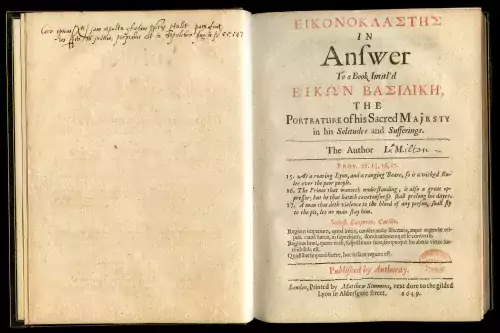 ΕΙΚΟΝΟΚΛΑΣΤΗΣ
IN
Anſwer
To a Book Intitl'd
ΕΙΚΩΝ ΒΑΣΙΛΙΚΗ,
THE
PORTRATURE of his Sacred MAJESTY
in his Solitudes and Sufferings.
The Author I. Milton
PROV. 28. 15, 16, 17.
15. As a roaring Lyon, and a ranging Beare, ſo is a wicked Ru-
ler over the poor people.
16. The Prince that wanteth underſtanding, is alſo a great op-
preſſor; but he that hateth covetouſneſſe ſhall prolong his dayes.
17. A man that doth violence to the blood of any perſon, ſhall fly
to the pit, let no man ſtay him.
Saluſt. Conjurat. Catilin.
Regium imperium, quod initio, conſervandæ libertatis, atque augendæ rei-
pub. causâ fuerat, in ſuperbiam, dominationemque ſe convertit.
Regibus boni, quam mali, ſuſpectiores ſunt; ſemperque his aliena virtus for-
midoloſa eſt.
Quidlibet impunè facere, hoc ſcilicet regium eſt.
Published by Authority.
London, Printed by Matthew Simmons, next dore to the gilded
Lyon in Alderſgate ſtreet. 1649.